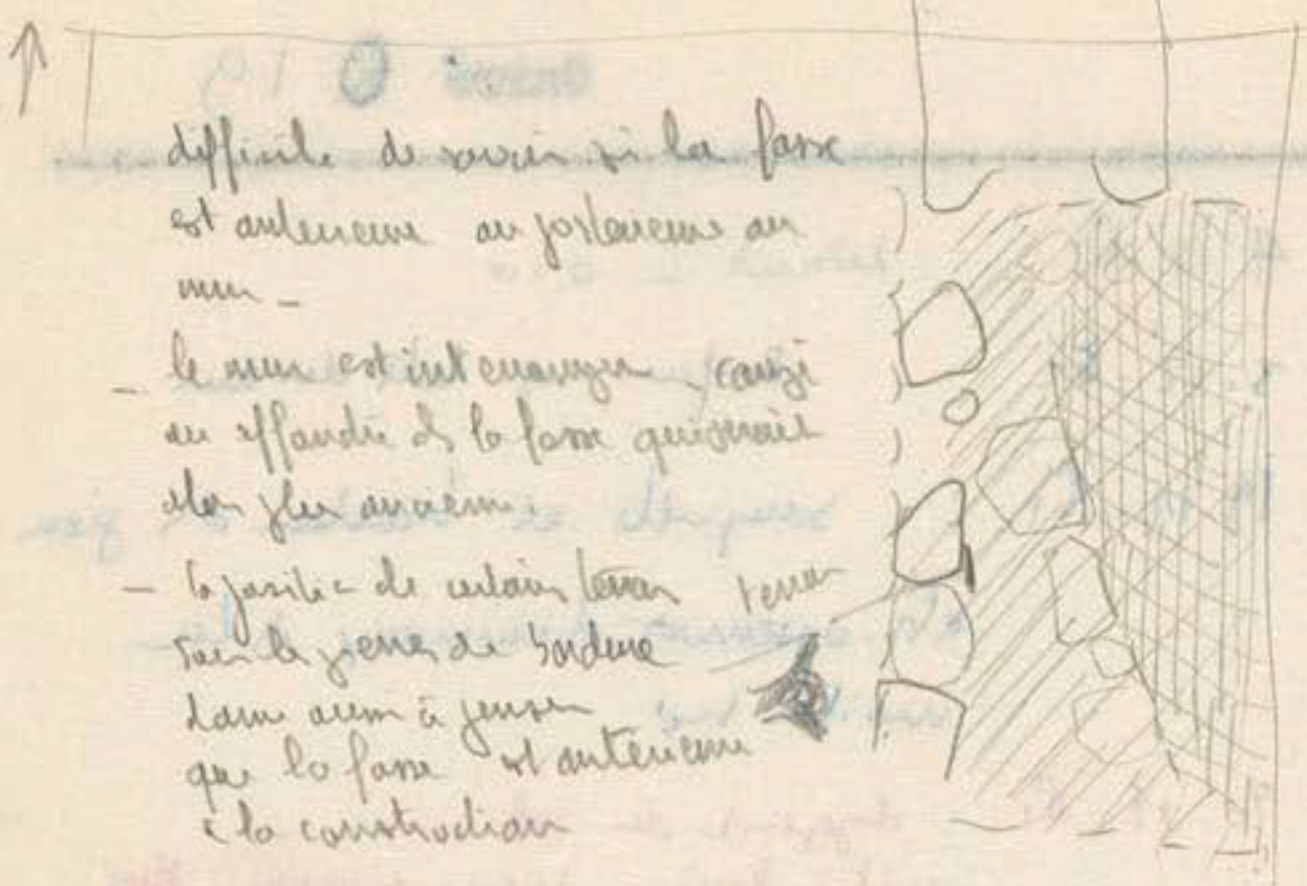 difficile de savoir si la fosse
est anterieure ou posterieure au
mur -
- le mur est
ou effondré ds la fosse qui serait
alors plus ancienne.
- la positi° de certains tessons tesson
sous les pierres de bordure
donne aussi à penser
que la fosse est anterieure
à la construction